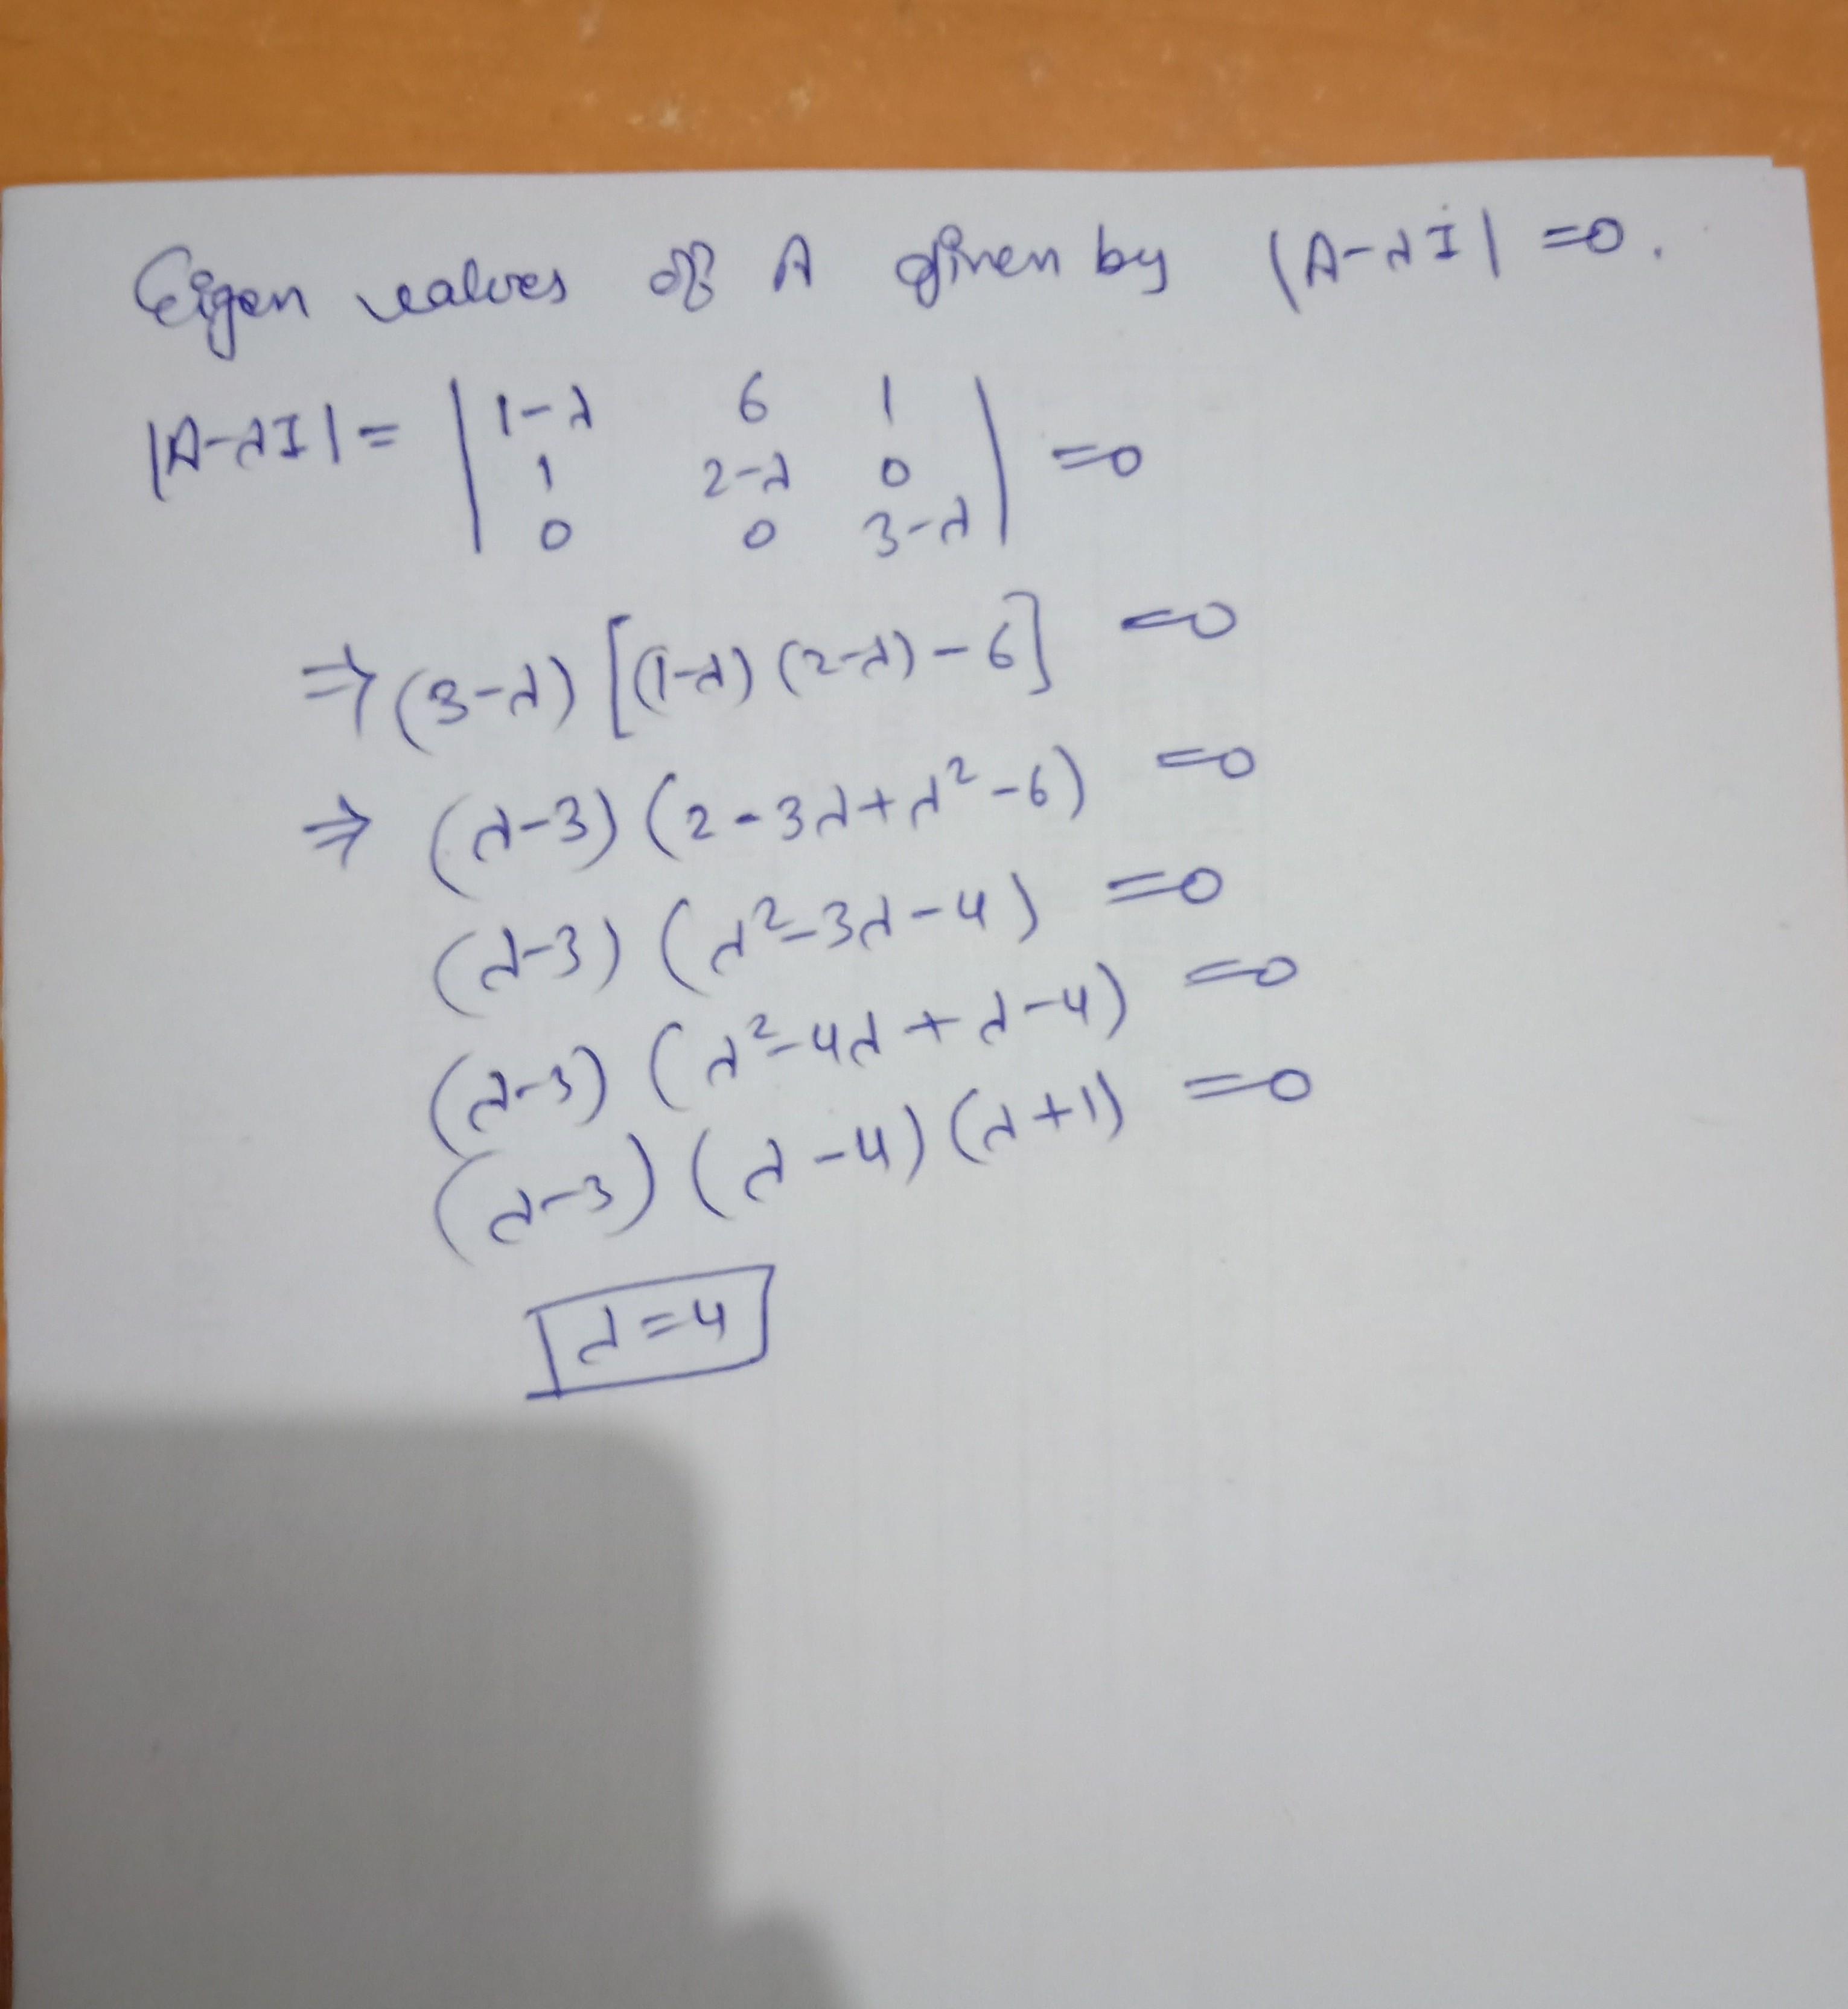 Eigen values of A given by |A-λI| =0.
|A-λI| = | 1-λ 6 1 |
| 1 2-λ 0 | =0
| 0 0 3-λ |
⇒ (3-λ) [(1-λ) (2-λ) - 6] =0
⇒ (λ-3) (2-3λ+λ²-6) =0
(λ-3) (λ²-3λ-4) =0
(λ-3) (λ²-4λ+λ-4) =0
(λ-3) (λ-4) (λ+1) =0
λ=4